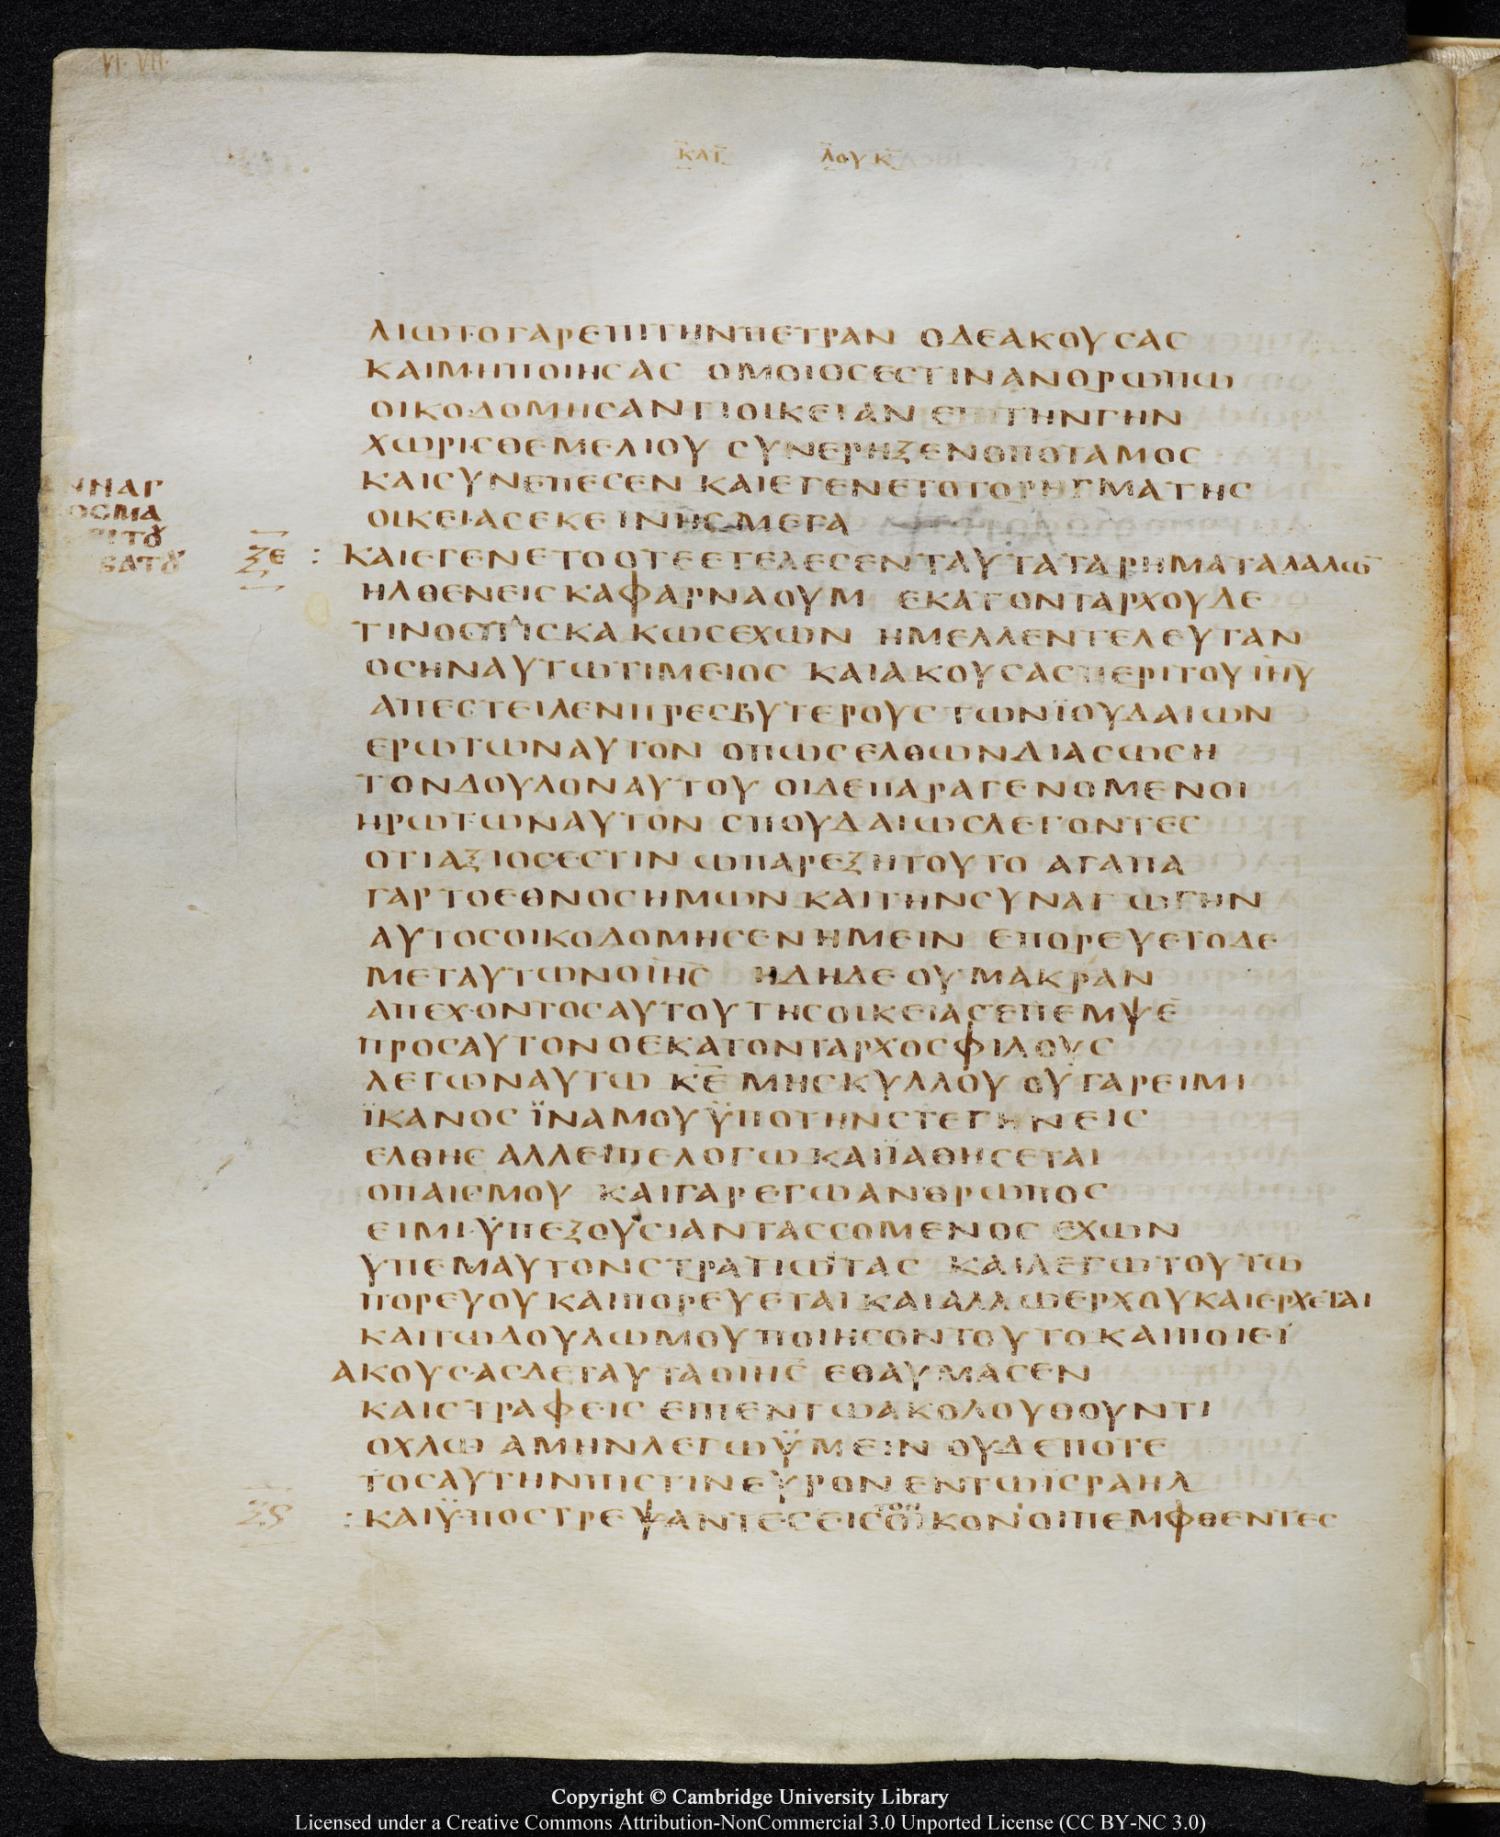 VI· VII·
ΚΑΤ ΛΟΥΚ
ΛΙΩΤΟΓΑΡΕΠΙΤΗΝΠΕΤΡΑΝ ΟΔΕΑΚΟΥСΑС
ΚΑΙΜΗΠΟΙΗСΑС ΟΜΟΙΟСΕСΤΙΝΑΝΘΡΩΠΩ
ΟΙΚΟΔΟΜΗСΑΝΤΙΟΙΚΕΙΑΝ ΕΠΙΤΗΝΓΗΝ
ΧΩΡΙСΘΕΜΕΛΙΟΥ СΥΝΕΡΗΞΕΝΟΠΟΤΑΜΟС
ΚΑΙСΥΝΕΠΕСΕΝ ΚΑΙΕΓΕΝΕΤΟΤΟΡΗΓΜΑΤΗС
ΟΙΚΕΙΑСΕΚΕΙΝΗСΜΕΓΑ
ΞΕ : ΚΑΙΕΓΕΝΕΤΟΟΤΕΕΤΕΛΕСΕΝΤΑΥΤΑΤΑΡΗΜΑΤΑΛΑΛΩ̅
ΗΛΘΕΝΕΙСΚΑΦΑΡΝΑΟΥΜ ΕΚΑΤΟΝΤΑΡΧΟΥΔΕ
ΤΙΝΟСΠΙСΚΑΚΩСΕΧΩΝ ΗΜΕΛΛΕΝΤΕΛΕΥΤΑΝ
ΟСΗΝΑΥΤΩΤΙΜΕΙΟС ΚΑΙΑΚΟΥСΑСΠΕΡΙΤΟΥΙΗΥ
ΑΠΕСΤΕΙΛΕΝΠΡΕСΒΥΤΕΡΟΥСΤΩΝΪΟΥΔΑΙΩΝ
ΕΡΩΤΩΝΑΥΤΟΝ ΟΠΩСΕΛΘΩΝΔΙΑСΩСΗ
ΤΟΝΔΟΥΛΟΝΑΥΤΟΥ ΟΙΔΕΠΑΡΑΓΕΝΟΜΕΝΟΙ
ΗΡΩΤΩΝΑΥΤΟΝ СΠΟΥΔΑΙΩСΛΕΓΟΝΤΕС
ΟΤΙΑΞΙΟСΕСΤΙΝ ΩΠΑΡΕΞΗΤΟΥΤΟ ΑΓΑΠΑ
ΓΑΡΤΟΕΘΝΟСΗΜΩΝ ΚΑΙΤΗΝСΥΝΑΓΩΓΗΝ
ΑΥΤΟСΟΙΚΟΔΟΜΗСΕΝΗΜΕΙΝ ΕΠΟΡΕΥΕΤΟΔΕ
ΜΕΤΑΥΤΩΝΟΙΗС ΗΔΗΔΕ ΟΥΜΑΚΡΑΝ
ΑΠΕΧΟΝΤΟСΑΥΤΟΥΤΗСΟΙΚΕΙΑСΕΠΕΜΨΕ̅
ΠΡΟСΑΥΤΟΝΟΕΚΑΤΟΝΤΑΡΧΟСΦΙΛΟΥС
ΛΕΓΩΝΑΥΤΩ ΚΕ ΜΗСΚΥΛΛΟΥ ΟΥΓΑΡΕΙΜΙ
ΪΚΑΝΟС ΪΝΑΜΟΥΫΠΟΤΗΝСΤΕΓΗΝΕΙС
ΕΛΘΗС ΑΛΛΕΙΠΕΛΟΓΩ ΚΑΙΪΑΘΗСΕΤΑΙ
ΟΠΑΙСΜΟΥ ΚΑΙΓΑΡΕΓΩΑΝΘΡΩΠΟС
ΕΙΜΙΫΠΕΞΟΥСΙΑΝΤΑССΟΜΕΝΟС ΕΧΩΝ
ΥΠΕΜΑΥΤΟΝСΤΡΑΤΙΩΤΑС ΚΑΙΛΕΓΩΤΟΥΤΩ
ΠΟΡΕΥΟΥΚΑΙΠΟΡΕΥΕΤΑΙΚΑΙΑΛΛΩΕΡΧΟΥΚΑΙΕΡΧΕΤΑΙ
ΚΑΙΤΩΔΟΥΛΩΜΟΥΠΟΙΗСΟΝΤΟΥΤΟΚΑΙΠΟΙΕΙ
ΑΚΟΥСΑСΔΕΤΑΥΤΑΟΙΗС ΕΘΑΥΜΑСΕΝ
ΚΑΙСΤΡΑΦΕΙС ΕΙΠΕΝΤΩΑΚΟΛΟΥΘΟΥΝΤΙ
ΟΧΛΩ ΑΜΗΝΛΕΓΩΫΜΕΙΝ ΟΥΔΕΠΟΤΕ
ΤΟСΑΥΤΗΝΠΙСΤΙΝΕΥΡΟΝ ΕΝΤΩΙСΡΑΗΛ
ΞϚ : ΚΑΙΫΠΟСΤΡΕΨΑΝΤΕСΕΙСΟΙΚΟΝΟΙΠΕΜΦΘΕΝΤΕС
Copyright © Cambridge University Library
Licensed under a Creative Commons Attribution-NonCommercial 3.0 Unported License (CC BY-NC 3.0)